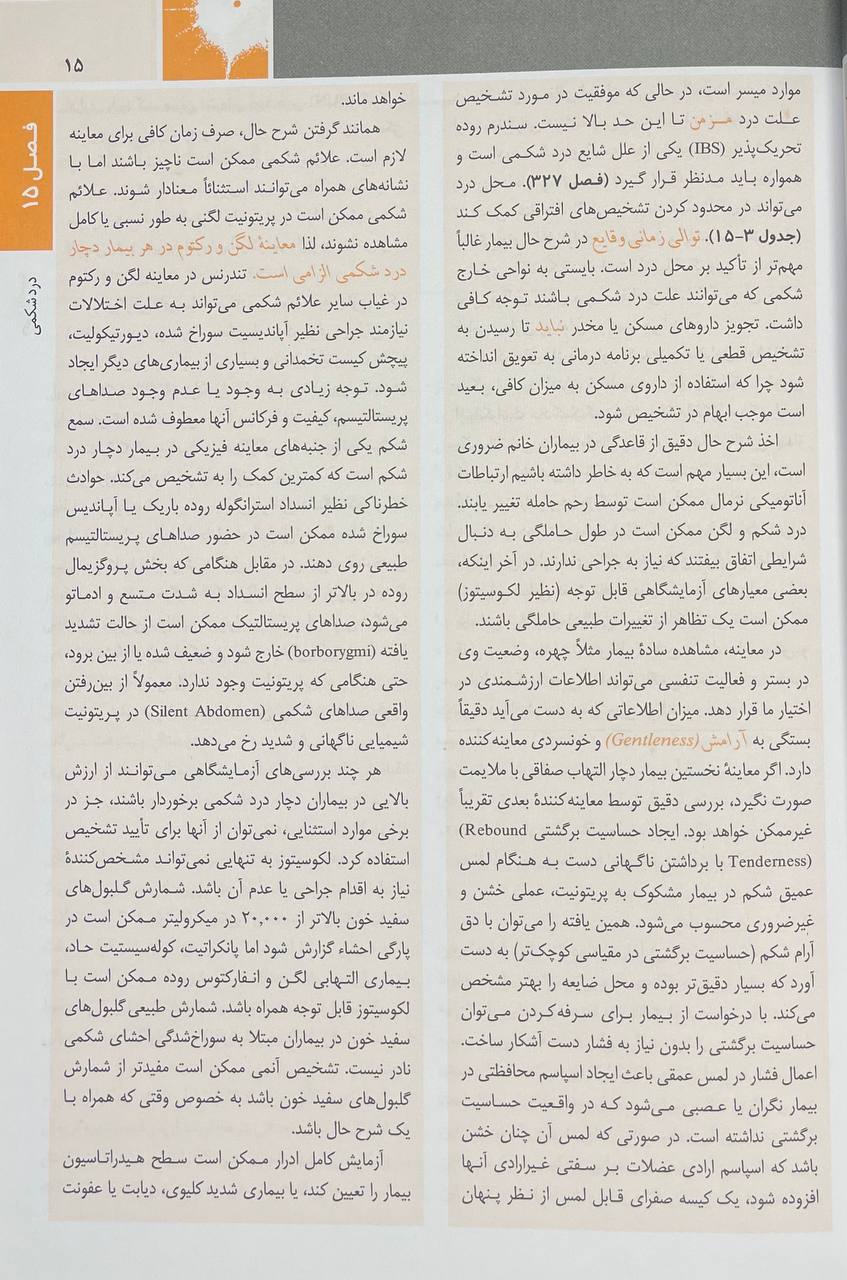 ۱۵
فصل ۱۵
درد شکمی
موارد میسر است، در حالی که موفقیت در مورد تشخیص
علت درد مزمن تا این حد بالا نیست. سندرم روده
تحریک‌پذیر (IBS) یکی از علل شایع درد شکمی است و
همواره باید مدنظر قرار گیرد (فصل ۳۲۷). محل درد
می‌تواند در محدود کردن تشخیص‌های افتراقی کمک کند
(جدول ۳-۱۵). توالی زمانی وقایع در شرح حال بیمار غالباً
مهم‌تر از تأکید بر محل درد است. بایستی به نواحی خارج
شکمی که می‌توانند علت درد شکمی باشند توجه کافی
داشت. تجویز داروهای مسکن یا مخدر نباید تا رسیدن به
تشخیص قطعی یا تکمیلی برنامه درمانی به تعویق انداخته
شود چرا که استفاده از داروی مسکن به میزان کافی، بعید
است موجب ابهام در تشخیص شود.
اخذ شرح حال دقیق از قاعدگی در بیماران خانم ضروری
است، این بسیار مهم است که به خاطر داشته باشیم ارتباطات
آناتومیکی نرمال ممکن است توسط رحم حامله تغییر یابند.
درد شکم و لگن ممکن است در طول حاملگی به دنبال
شرایطی اتفاق بیفتند که نیاز به جراحی ندارند. در آخر اینکه،
بعضی معیارهای آزمایشگاهی قابل توجه (نظیر لکوسیتوز)
ممکن است یک تظاهر از تغییرات طبیعی حاملگی باشند.
در معاینه، مشاهده سادهٔ بیمار مثلاً چهره، وضعیت وی
در بستر و فعالیت تنفسی می‌تواند اطلاعات ارزشمندی در
اختیار ما قرار دهد. میزان اطلاعاتی که به دست می‌آید دقیقاً
بستگی به آرامش (Gentleness) و خونسردی معاینه‌کننده
دارد. اگر معاینهٔ نخستین بیمار دچار التهاب صفاقی با ملایمت
صورت نگیرد، بررسی دقیق توسط معاینه‌کنندهٔ بعدی تقریباً
غیرممکن خواهد بود. ایجاد حساسیت برگشتی (Rebound
Tenderness) با برداشتن ناگهانی دست به هنگام لمس
عمیق شکم در بیمار مشکوک به پریتونیت، عملی خشن و
غیرضروری محسوب می‌شود. همین یافته را می‌توان با دق
آرام شکم (حساسیت برگشتی در مقیاسی کوچک‌تر) به دست
آورد که بسیار دقیق‌تر بوده و محل ضایعه را بهتر مشخص
می‌کند. با درخواست از بیمار برای سرفه‌کردن می‌توان
حساسیت برگشتی را بدون نیاز به فشار دست آشکار ساخت.
اعمال فشار در لمس عمقی باعث ایجاد اسپاسم محافظتی در
بیمار نگران یا عصبی می‌شود که در واقعیت حساسیت
برگشتی نداشته است. در صورتی که لمس آن چنان خشن
باشد که اسپاسم ارادی عضلات بر سفتی غیرارادی آنها
افزوده شود، یک کیسه صفرای قابل لمس از نظر پنهان
خواهد ماند.
همانند گرفتن شرح حال، صرف زمان کافی برای معاینه
لازم است. علائم شکمی ممکن است ناچیز باشند اما با
نشانه‌های همراه می‌توانند استثنائاً معنادار شوند. علائم
شکمی ممکن است در پریتونیت لگنی به طور نسبی یا کامل
مشاهده نشوند، لذا معاینهٔ لگن و رکتوم در هر بیمار دچار
درد شکمی الزامی است. تندرنس در معاینه لگن و رکتوم
در غیاب سایر علائم شکمی می‌تواند به علت اختلالات
نیازمند جراحی نظیر آپاندیسیت سوراخ شده، دیورتیکولیت،
پیچش کیست تخمدانی و بسیاری از بیماری‌های دیگر ایجاد
شود. توجه زیادی به وجود یا عدم وجود صداهای
پریستالتیسم، کیفیت و فرکانس آنها معطوف شده است. سمع
شکم یکی از جنبه‌های معاینه فیزیکی در بیمار دچار درد
شکم است که کمترین کمک را به تشخیص می‌کند. حوادث
خطرناکی نظیر انسداد استرانگوله روده باریک یا آپاندیس
سوراخ شده ممکن است در حضور صداهای پریستالتیسم
طبیعی روی دهند. در مقابل هنگامی که بخش پروگزیمال
روده در بالاتر از سطح انسداد به شدت متسع و ادماتو
می‌شود، صداهای پریستالتیک ممکن است از حالت تشدید
یافته (borborygmi) خارج شود و ضعیف شده یا از بین برود،
حتی هنگامی که پریتونیت وجود ندارد. معمولاً از بین‌رفتن
واقعی صداهای شکمی (Silent Abdomen) در پریتونیت
شیمیایی ناگهانی و شدید رخ می‌دهد.
هر چند بررسی‌های آزمایشگاهی می‌توانند از ارزش
بالایی در بیماران دچار درد شکمی برخوردار باشند، جز در
برخی موارد استثنایی، نمی‌توان از آنها برای تأیید تشخیص
استفاده کرد. لکوسیتوز به تنهایی نمی‌تواند مشخص‌کنندهٔ
نیاز به اقدام جراحی یا عدم آن باشد. شمارش گلبول‌های
سفید خون بالاتر از ۲۰,۰۰۰ در میکرولیتر ممکن است در
پارگی احشاء گزارش شود اما پانکراتیت، کوله‌سیستیت حاد،
بیماری التهابی لگن و انفارکتوس روده ممکن است با
لکوسیتوز قابل توجه همراه باشد. شمارش طبیعی گلبول‌های
سفید خون در بیماران مبتلا به سوراخ‌شدگی احشای شکمی
نادر نیست. تشخیص آنمی ممکن است مفیدتر از شمارش
گلبول‌های سفید خون باشد به خصوص وقتی که همراه با
یک شرح حال باشد.
آزمایش کامل ادرار ممکن است سطح هیدراتاسیون
بیمار را تعیین کند، یا بیماری شدید کلیوی، دیابت یا عفونت